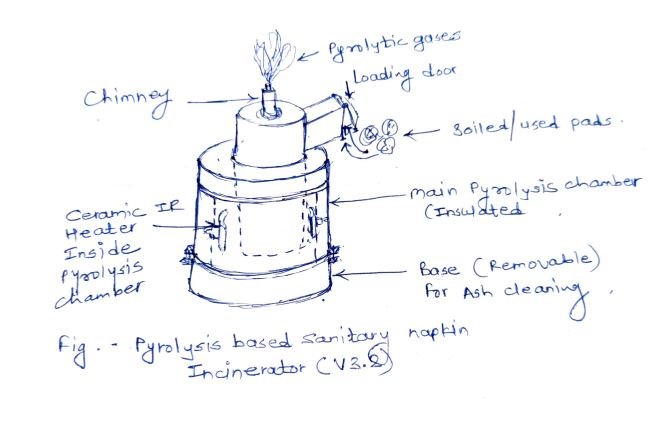 Pyrolytic gases
Loading door
Chimney
Soiled/used pads.
main Pyrolysis chamber
(Insulated
Ceramic IR
Heater
Inside
Pyrolysis
chamber
Base (Removable)
For Ash cleaning.
Fig. - Pyrolysis based sanitary napkin
Incinerator (V3.2)